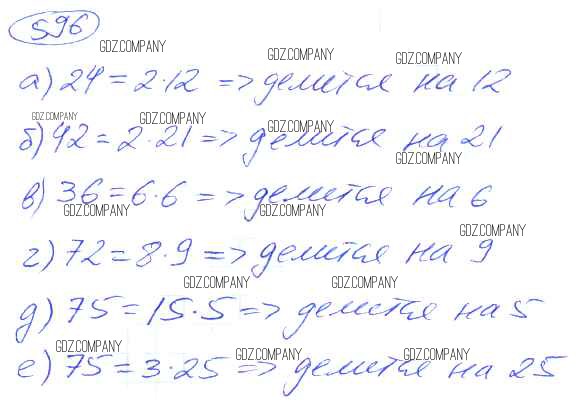 596
GDZ.COMPANY GDZ.COMPANY GDZ.COMPANY
а) 24 = 2·12 => делится на 12
GDZ.COMPANY GDZ.COMPANY GDZ.COMPANY
б) 42 = 2·21 => делится на 21
GDZ.COMPANY
в) 36 = 6·6 => делится на 6
GDZ.COMPANY GDZ.COMPANY GDZ.COMPANY
г) 72 = 8·9 => делится на 9
GDZ.COMPANY GDZ.COMPANY
д) 75 = 15·5 => делится на 5
GDZ.COMPANY GDZ.COMPANY GDZ.COMPANY
е) 75 = 3·25 => делится на 25